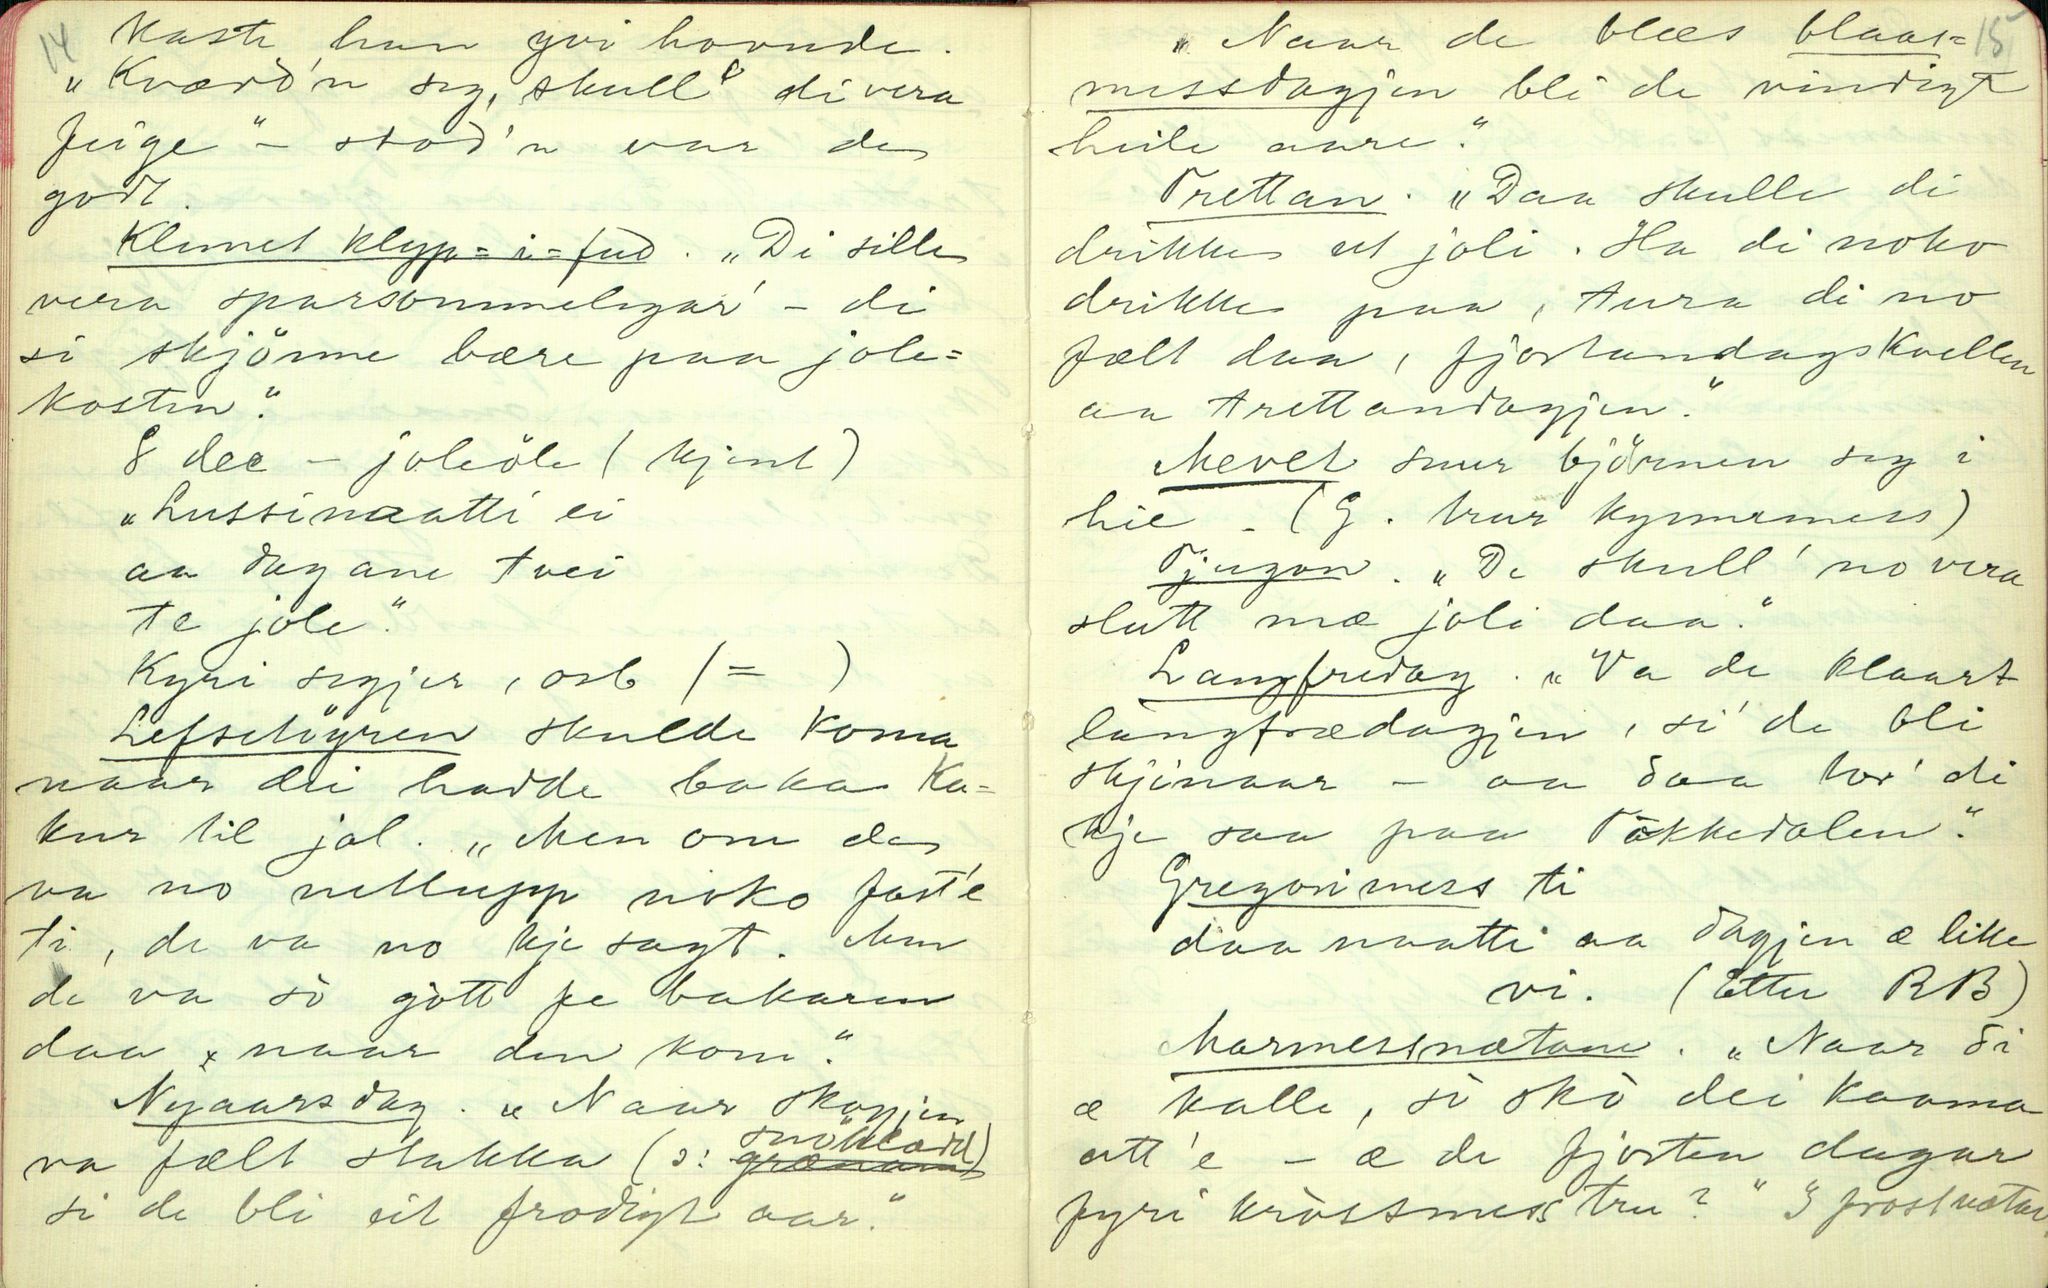 14
kaste han yvi hovude.
„Kværd'n seg, skull' di vera
feige" – stod'n var de
godt.
Klemet klyp=i=fud. „Di sille
vera sparsommeligar' – di
si skjönne bære paa jole=
kosten."
8 dec – joleöle (kjent)
„Lussinaatti ei
aa dagane tvei
te jole."
Kyri segjer, osb (= )
Lefsetöyren skulde koma
naar dei hadde baka ka=
kur til jol. „Men om de
va no nettupp noko fast'e
ti, de va no kje sagt. Men
de va so gott fe bakaren
daa, naar den kom."
Nyaarsdag. „Naar skogjen
va fælt stakka (ɔ: snöklædd)
si de bli eit frodigt aar."
15
„Naar de blæs blaas=
messdagjen bli de vindigt
heile aare."
Trettan. „Daa skulle di
drikke ut joli. Ha di noko
drikke paa, tura di no
fælt daa, fjortandagskvellen
aa trettandagjen."
Mevet snur björnen seg i
hie – (G. trur kynnermess)
Tjugon. „De skull' no vera
slutt mæ joli daa."
Langfredag. „Va de klaart
langfrædagjen, si' de bli
skjinaar – aa daa tor' di
kje saa paa Tokkedalen."
Gregorimess ti
daa naatti aa dagjen æ like
vi. (Etter RB)
Marmessnætane. „Naar di
æ kalle, so sko dei kaama
att'e – æ de fjorten dagar
fyri krossmess tru?" 3 frostnætar